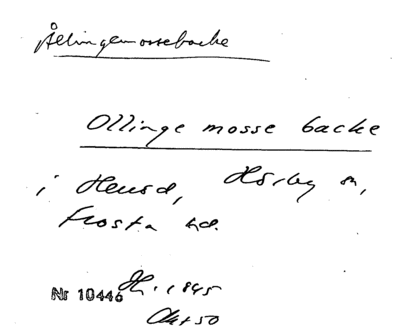 Ållingemossebacke
Ollinge mosse backe
i Heusd, Hörby sn,
Frosta hd.
Nr 10446 H. 1845
Akt 50